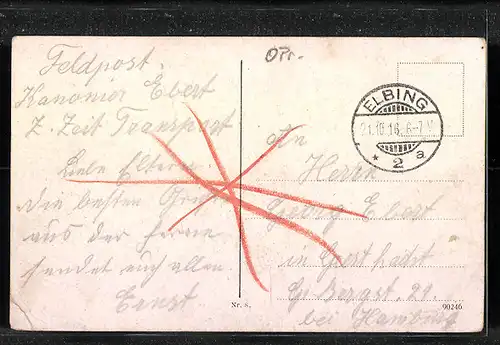 Feldpost.
Kanonier Ebert
Z. Zeit Transport
Liebe Eltern
die besten Grüße
aus der Ferne
sendet euch allen
Ernst
OPr.
ELBING
21.10.16. 6-7 V.
* 2 a
An
Herrn
Georg Ebert
in Geesthacht
Gr. Bergst. 29
bei Hamburg
Nr. 8.
00246